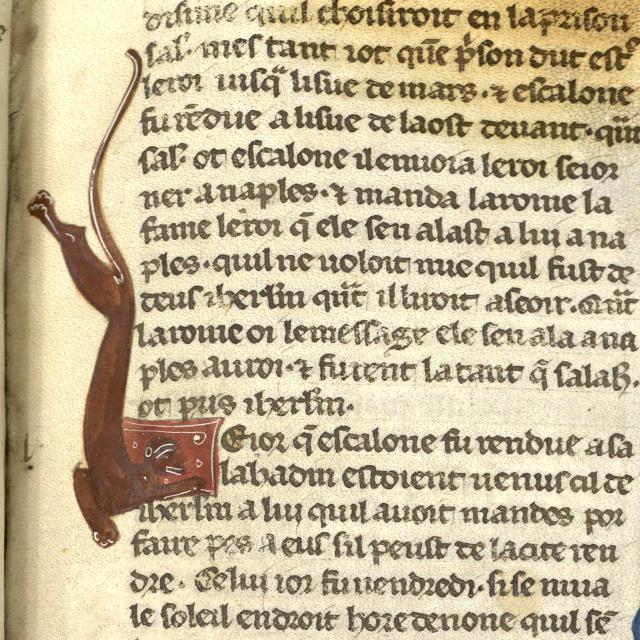 disme quil choisiroit en la prison
sal. mes tant iot que pson dut estre
le roi iusq lisue de mars. & escalone
fu rendue a lisue de laost deuant. qnt
sal ot escalone il enuoia le roi seior
ner a naples. & manda la roine sa
fame le roi q ele sen alast a lui a na
ples. quil ne uoloit mie quil fust de
dens iherlm qnt il liroit aseoir. Qnt
la roine oi le message ele sen ala a na
ples au roi. & furent la tant q salah.
ot pris iherlm.
Le ior q escalone fu rendue a sa
lahadin estoient uenus cil de
iherlm a lui quil auoit mandes por
faire pes a eus sil peust de la cite ren
dre. Celui ior fu uendredi. si se mua
le soleil endroit hore de none quil sen